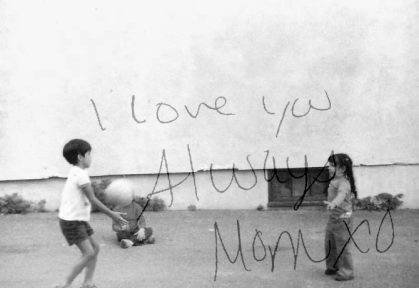 I love you
Always
Mom xo